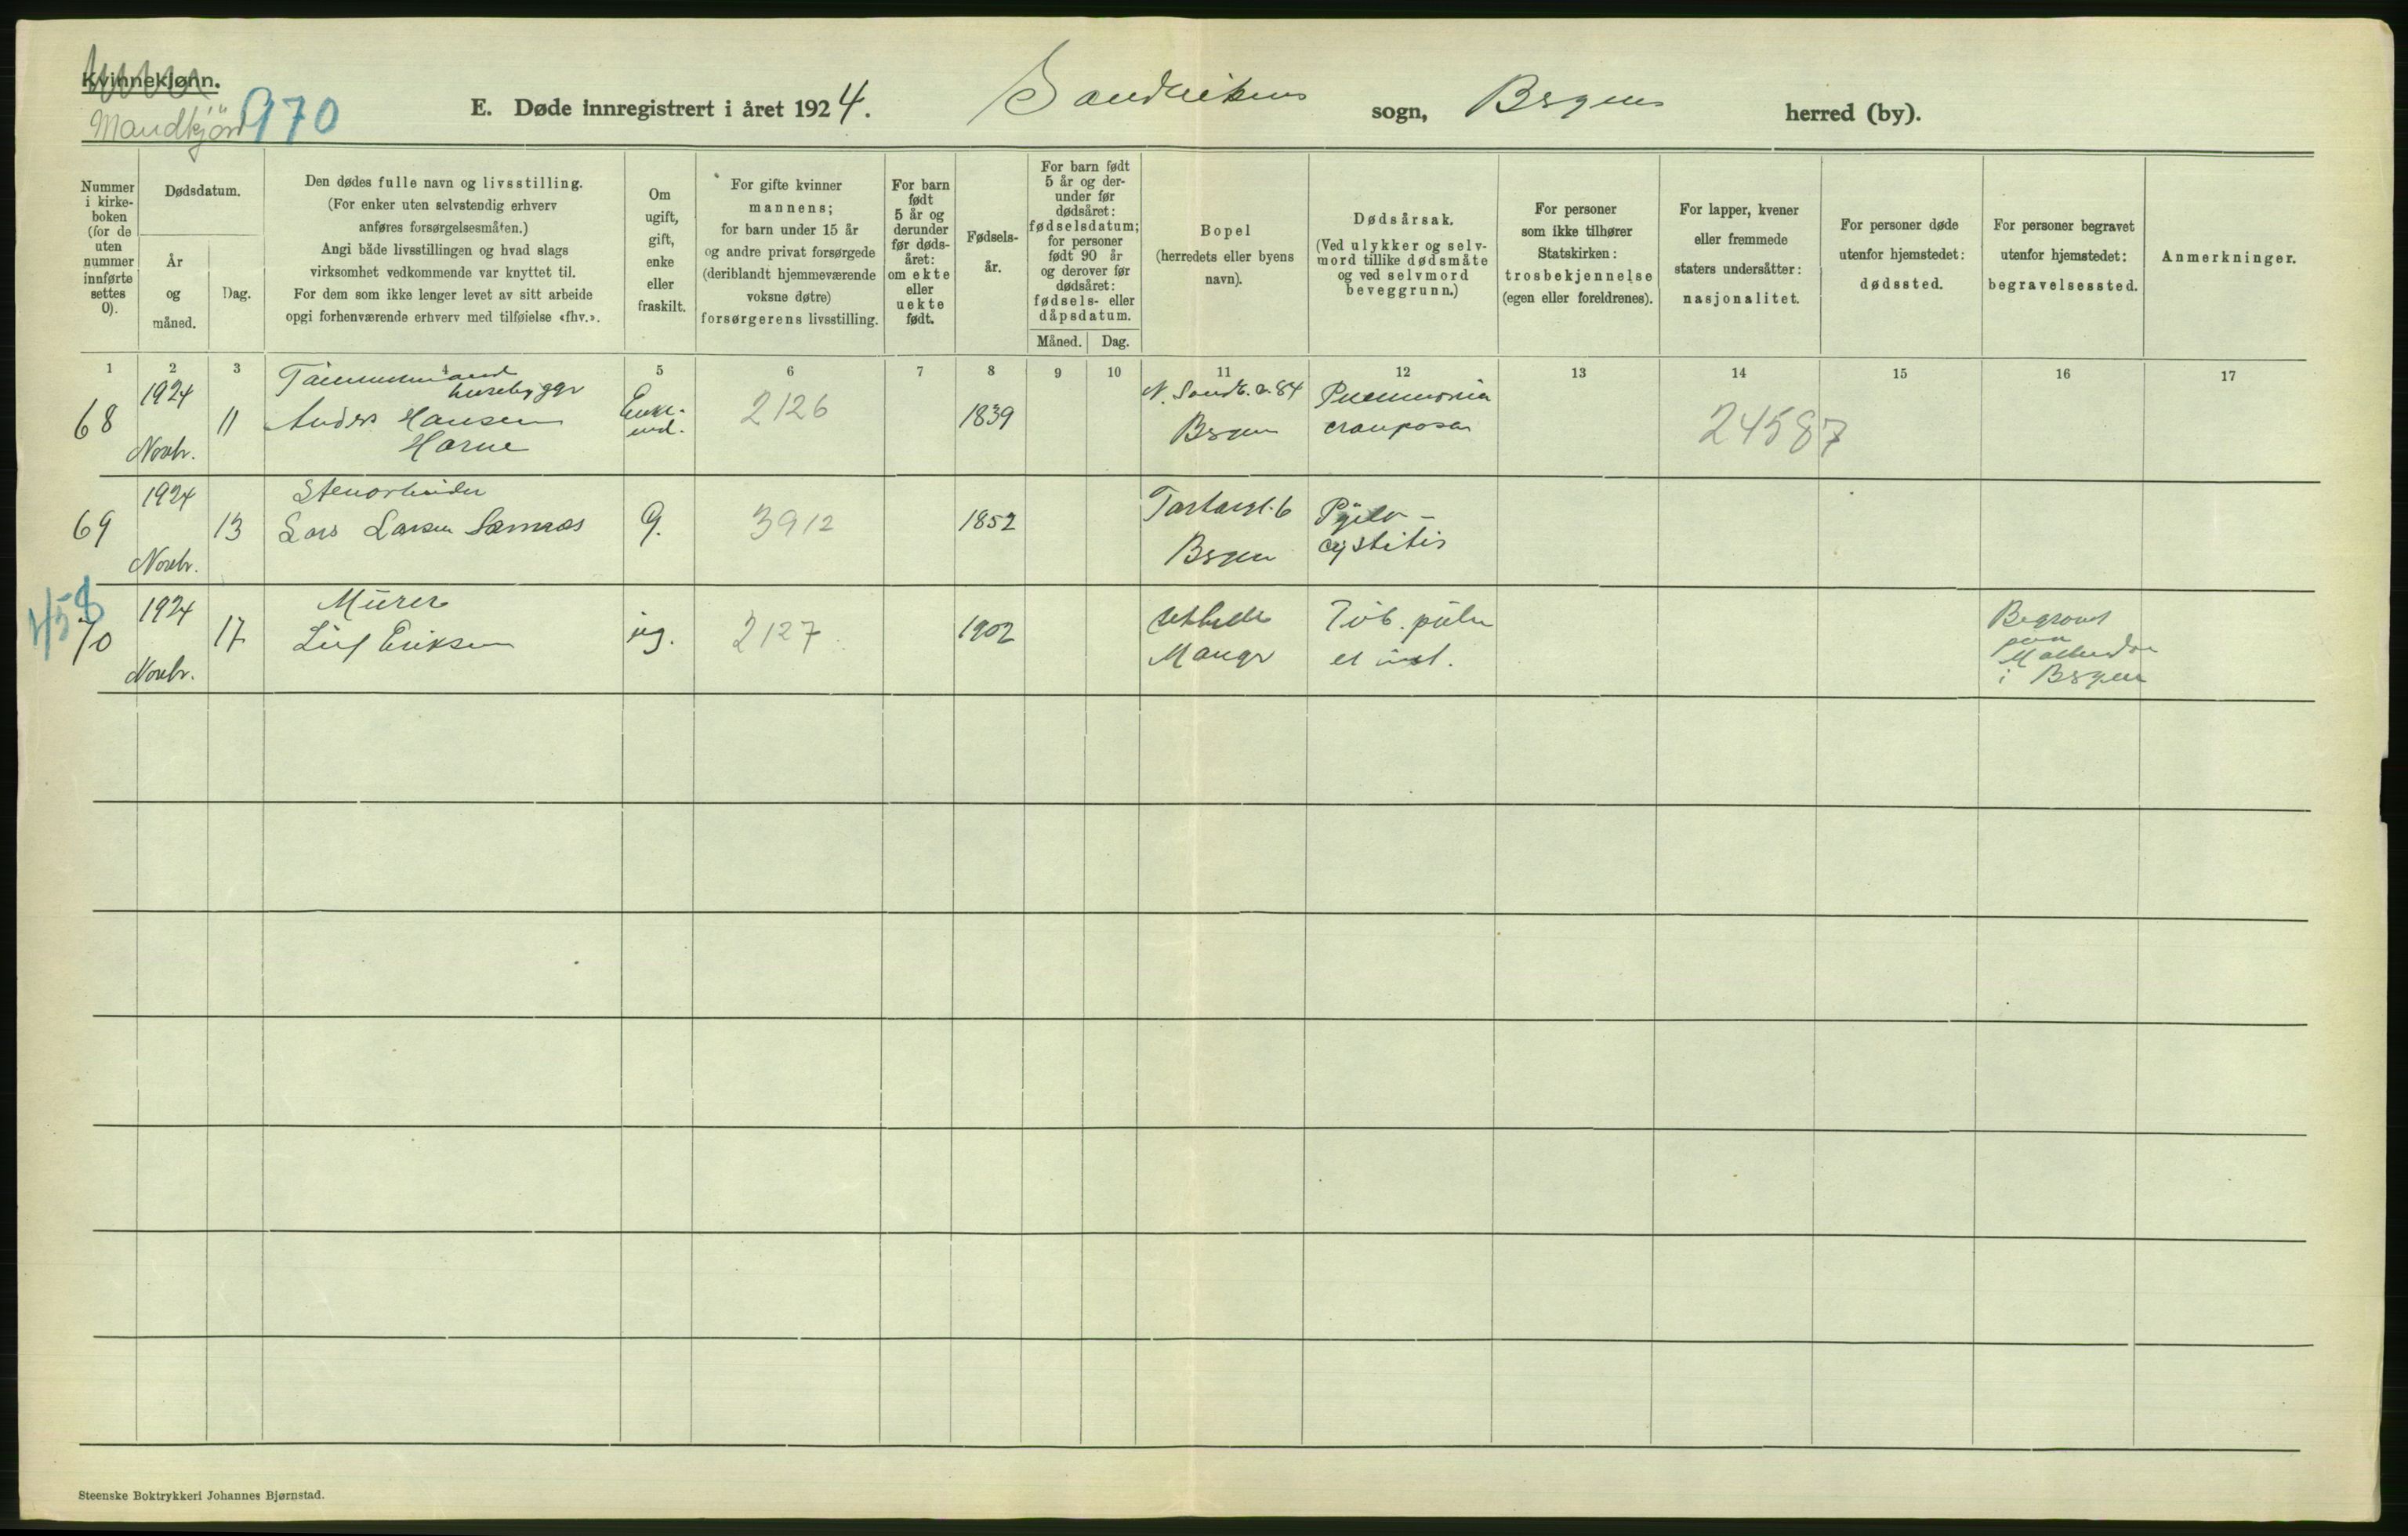 Kvinnekjønn.
Mandkjön
970
E. Døde innregistrert i året 1924.
Sandvikens sogn, Bergens herred (by).
Nummer
i kirke-
boken
(for de
uten
nummer
innførte
settes
0).
Dødsdatum.
År
og
måned.
Dag.
Den dødes fulle navn og livsstilling.
(For enker uten selvstendig erhverv
anføres forsørgelsesmåten.)
Angi både livsstillingen og hvad slags
virksomhet vedkommende var knyttet til.
For dem som ikke lenger levet av sitt arbeide
opgi forhenværende erhverv med tilføielse «fhv.».
Om
ugift,
gift,
enke
eller
fraskilt.
For gifte kvinner
mannens;
for barn under 15 år
og andre privat forsørgede
(deriblandt hjemmeværende
voksne døtre)
forsørgerens livsstilling.
For barn
født
5 år og
derunder
før døds-
året:
om ekte
eller
uekte
født.
Fødsels-
år.
For barn født
5 år og der-
under før
dødsåret:
fødselsdatum;
for personer
født 90 år
og derover før
dødsåret:
fødsels- eller
dåpsdatum.
Måned. Dag.
Bopel
(herredets eller byens
navn).
Dødsårsak.
(Ved ulykker og selv-
mord tillike dødsmåte
og ved selvmord
beveggrunn.)
For personer
som ikke tilhører
Statskirken:
trosbekjennelse
(egen eller foreldrenes).
For lapper, kvener
eller fremmede
staters undersåtter:
nasjonalitet.
For personer døde
utenfor hjemstedet:
dødssted.
For personer begravet
utenfor hjemstedet:
begravelsessted.
Anmerkninger.
1 2 3 4 5 6 7 8 9 10 11 12 13 14 15 16 17
68
1924
Novbr.
11
Tømmermand
husebygger
Anders Hansen
Horne
Enke-
md.
2126
1839
N. Sandv. v. 84
Bergen
Pneumonia
crouposa
24587
69
1924
Novbr.
13
Stenarbeider
Lars Larsen
G.
3912
1852
Bergen
Pyelo-
cystitis
458
70
1924
Novbr.
17
Murer
Leif Eriksen
ug.
2127
1902
Manger
Tub. pulm
et int.
Begravet
paa
Møllendal
i Bergen
Steenske Boktrykkeri Johannes Bjørnstad.